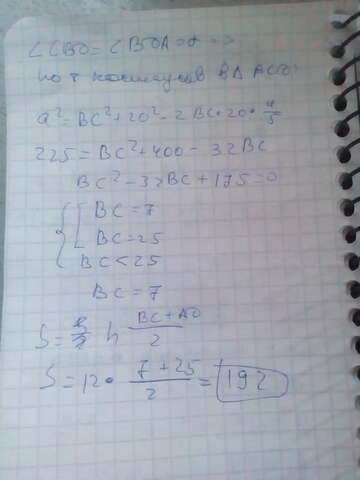 ∠CBD = ∠BDA = α =>
по т косинусов в Δ BCD:
a² = BC² + 20² - 2 BC • 20 • 4/5
225 = BC² + 400 - 32BC
BC² - 32BC + 175 = 0
{ [ BC = 7
BC = 25
BC < 25
BC = 7
S = h (BC + AD)/2
S = 12 • (7 + 25)/2 = 192